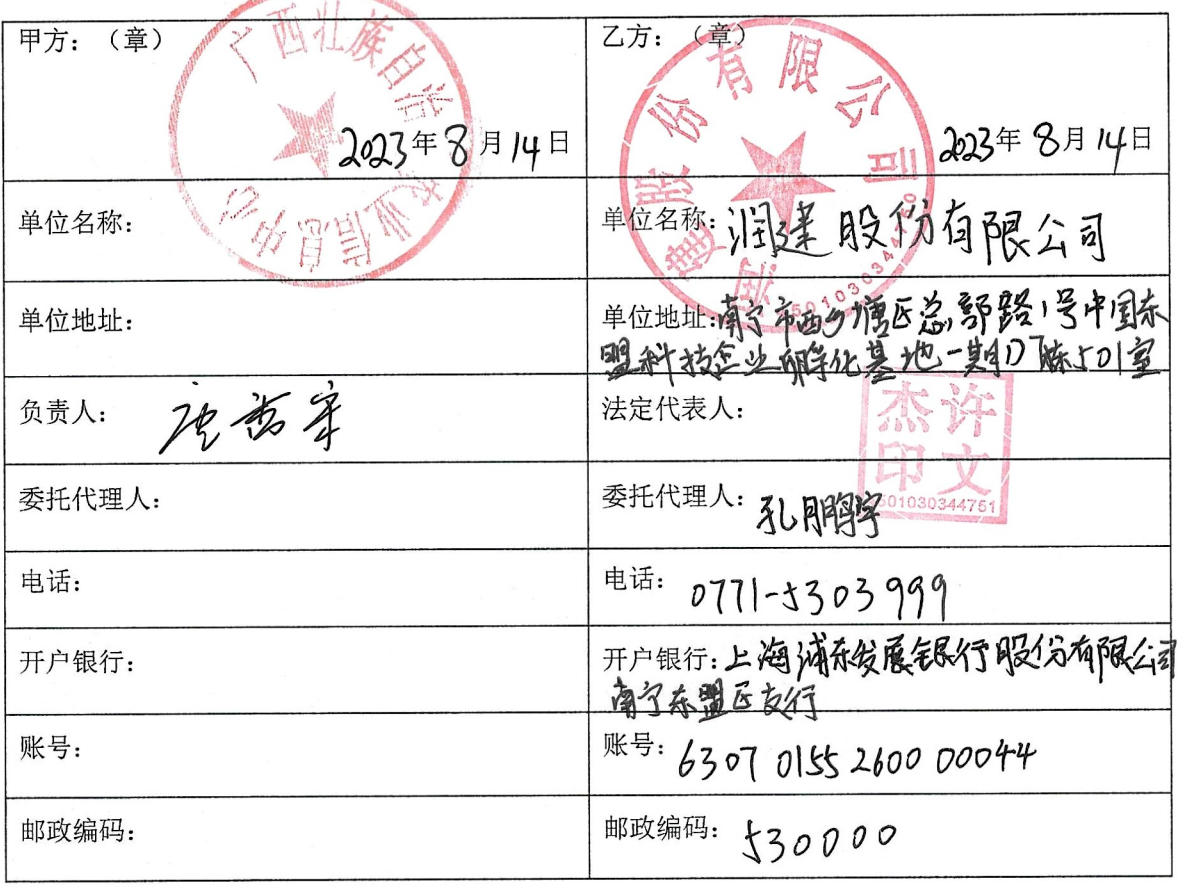 甲方：（章）
广西壮族自治
业信息中心
2023年8月14日
乙方：（章）
润建股份有限公司
2023年8月14日
单位名称：
单位名称：润建股份有限公司
单位地址：
单位地址：南宁市西乡塘区总部路1号中国东
盟科技企业孵化基地一期D7栋501室
负责人：
法定代表人：
许文
杰印
501030344751
委托代理人：
委托代理人：孔鹏宇
电话：
电话：0771-5303999
开户银行：
开户银行：上海浦东发展银行股份有限公司
南宁东盟区支行
账号：
账号：6307 0155 2600 00044
邮政编码：
邮政编码：530000